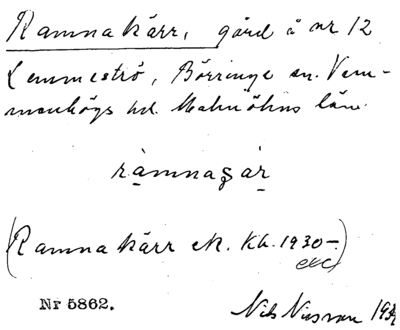 Ramnakärr, gård å nr 12
Lemmeströ, Börringe sn. Vem-
menhögs hd. Malmöhus län.
ramnaʂár
(Ramnakärr ek. Kb. 1930-)
etc
Nr 5862.
Nils Nilsson 193